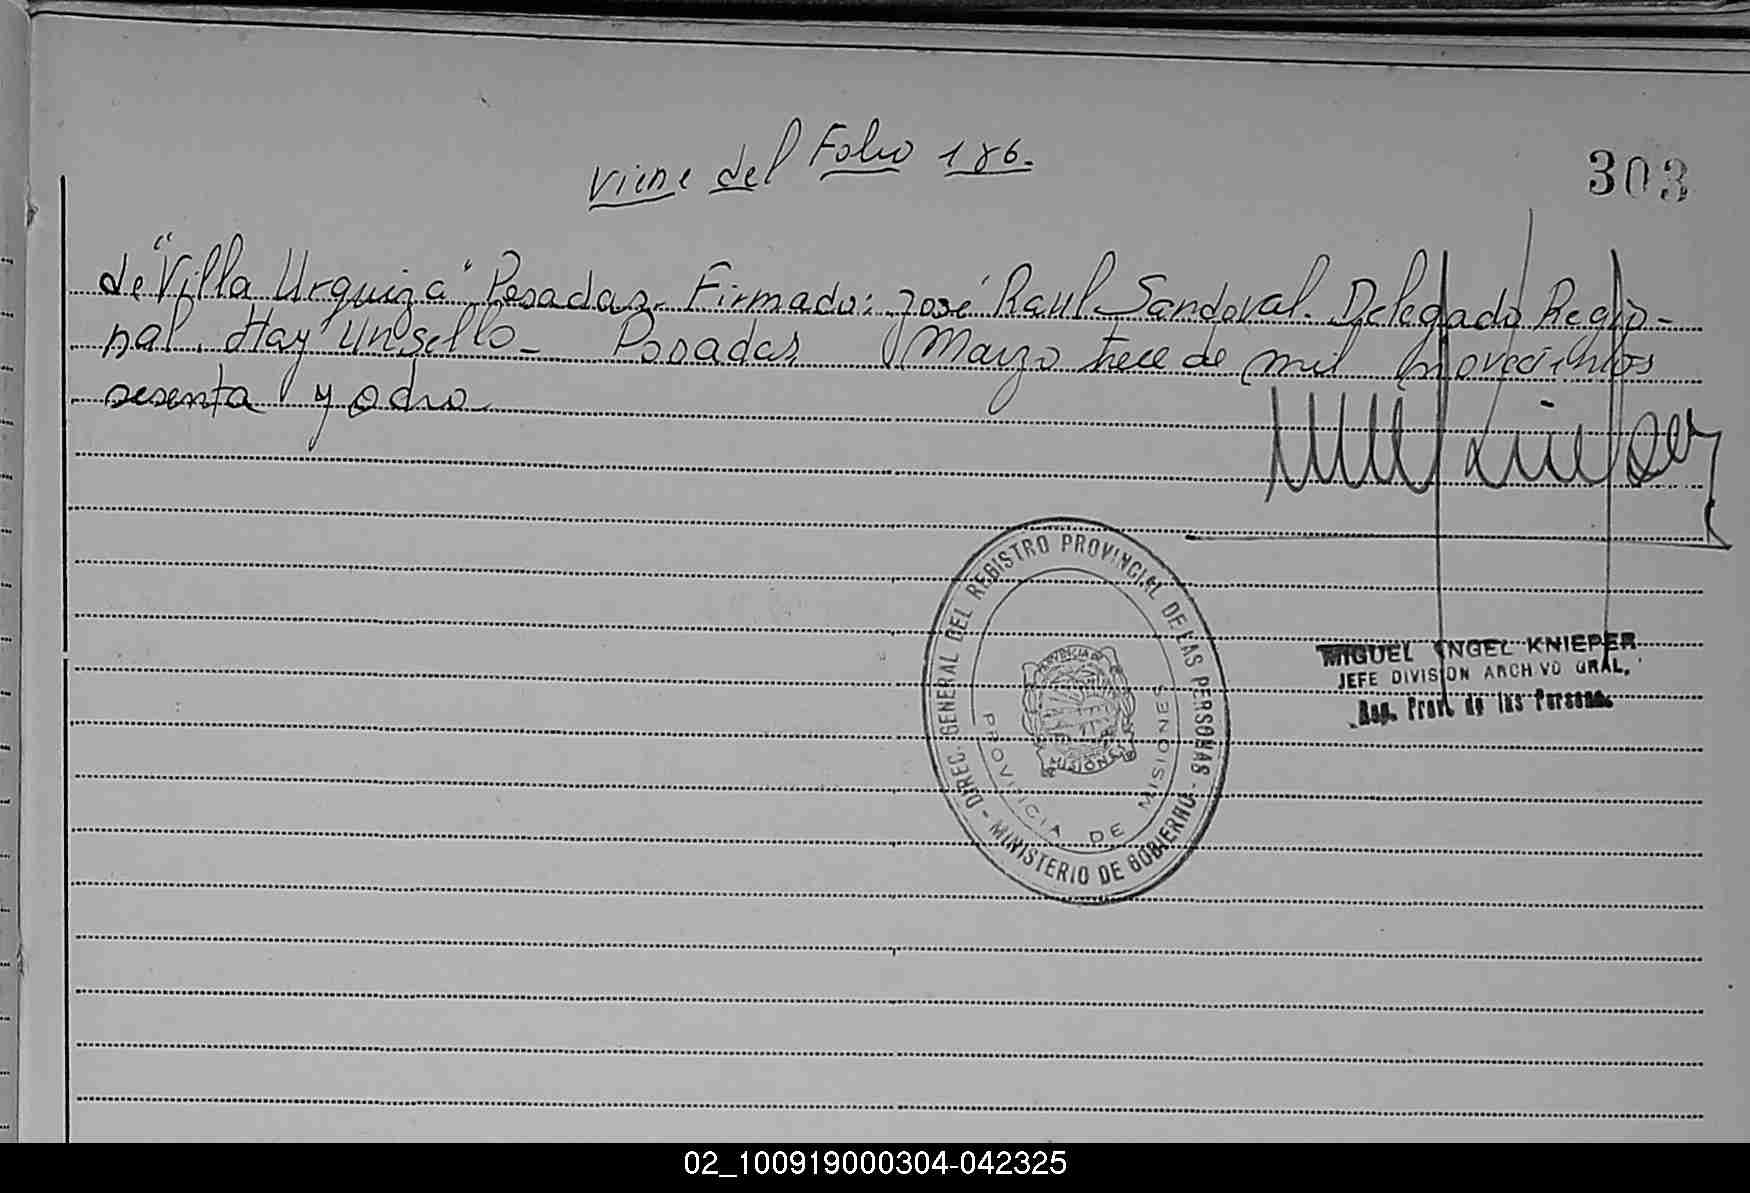 Viene del Folio 186.
303
de "Villa Urquiza" Posadas. Firmado: José Raul Sandoval. Delegado Regio-
nal. Hay Un sello - Posadas Marzo trece de mil novecientos
sesenta y ocho
DIREC. GENERAL DEL REGISTRO PROVINCIAL DE LAS PERSONAS - MINISTERIO DE GOBIERNO -
PROVINCIA DE MISIONES
PROVINCIA DE
MISIONES
MIGUEL ANGEL KNIEPER
JEFE DIVISION ARCHIVO GRAL.
Reg. Prov. de las Personas
02_100919000304-042325